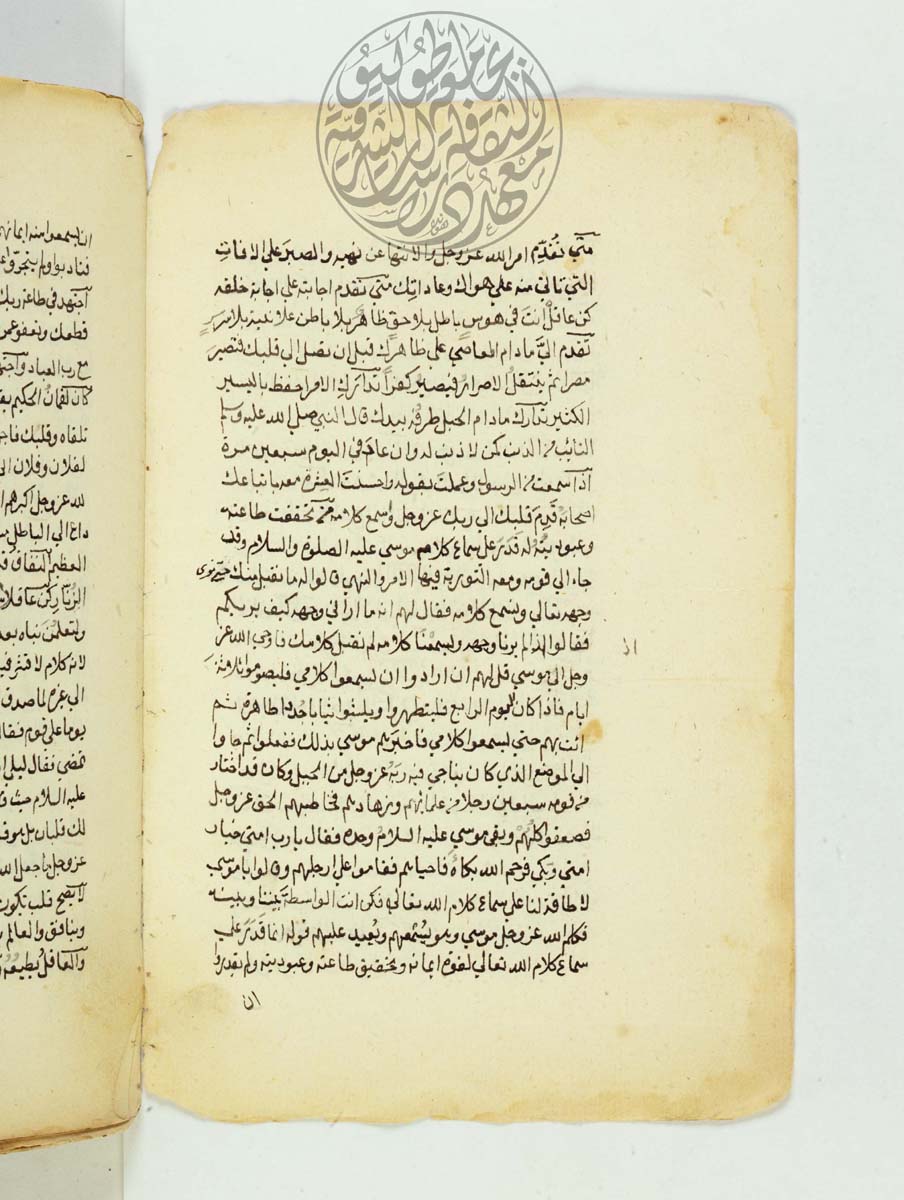 متي تقدم امر الله عز وجل والانتها عن نهيه والصبر علي الافات
التي تاتي منه علي هواك وعاداتك متي تقدم اجابته علي اجابة خلقه
كن عاقل انت في هوس باطل بلا حق ظاهر بلا باطن علانية بلا سر
تقدم الي مادام المعاصي علي ظاهرك قبل ان تصل الي قلبك فتصير
مصرا ثم ينتقل الاصرار فيصير كفرا تدارك الامر احفظ باليسير
الكثير تدارك مادام الحبل طرفه بيدك قال النبي صلي الله عليه وسلم
التائب من الذنب كمن لا ذنب له وان عاد في اليوم سبعين مرة
اذا سمعت من الرسول وعملت بقوله واحسنت العشرة معه باتباعك
اصحابه قدم قلبك الي ربك عز وجل واسمع كلامه من تحققت طاعته
وعبوديته له قدر علي سماع كلامه موسي عليه الصلوة والسلام وقد
جاء الي قومه ومعه التورية فيها الامر والنهي قالوا له ما نقبل منك حتي نري
وجهه تعالي ونسمع كلامه فقال لهم انه ما اراني وجهه كيف يريكم
فقالوا اذا لم يرنا وجهه ولم يسمعنا كلامه لم نقبل كلامك فاوحي الله عز
وجل الي موسي قل لهم ان ارادوا ان يسمعوا كلامي فليصوموا ثلاثة
ايام فاذا كان اليوم الرابع فليتطهروا ويلبسوا ثيابا جددا طاهرة ثم
ائت بهم حتي يسمعوا كلامي فاخبرهم موسي بذلك ففعلوا ثم جاوا
الي الموضع الذي كان يناجي فيه ربه عز وجل من الجبل وكان قد اختار
من قومه سبعين رجلا من علمائهم وزهادهم فخاطبهم الحق عز وجل
فصعقوا كلهم وبقي موسي عليه السلام وحده فقال يا رب امتي خيار
امتي وبكي فرحم الله بكاه فاحياهم فقاموا علي ارجلهم وقالوا يا موسي
لا طاقة لنا علي سماع كلام الله تعالي فكن انت الواسطة بيننا وبينه
فكلم الله عز وجل موسي وهو يسمعهم ويعيد عليهم قوله انما قدر علي
سماع كلام الله تعالي لقوة ايمانه وتحقيق طاعته وعبوديته ولم يقدروا
ان